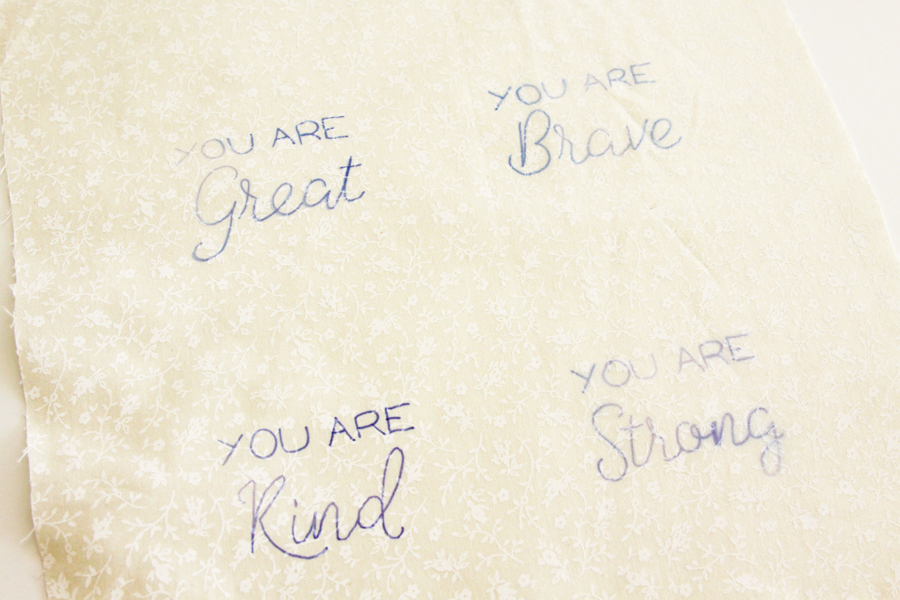 YOU ARE
Great
YOU ARE
Brave
YOU ARE
Kind
YOU ARE
Strong